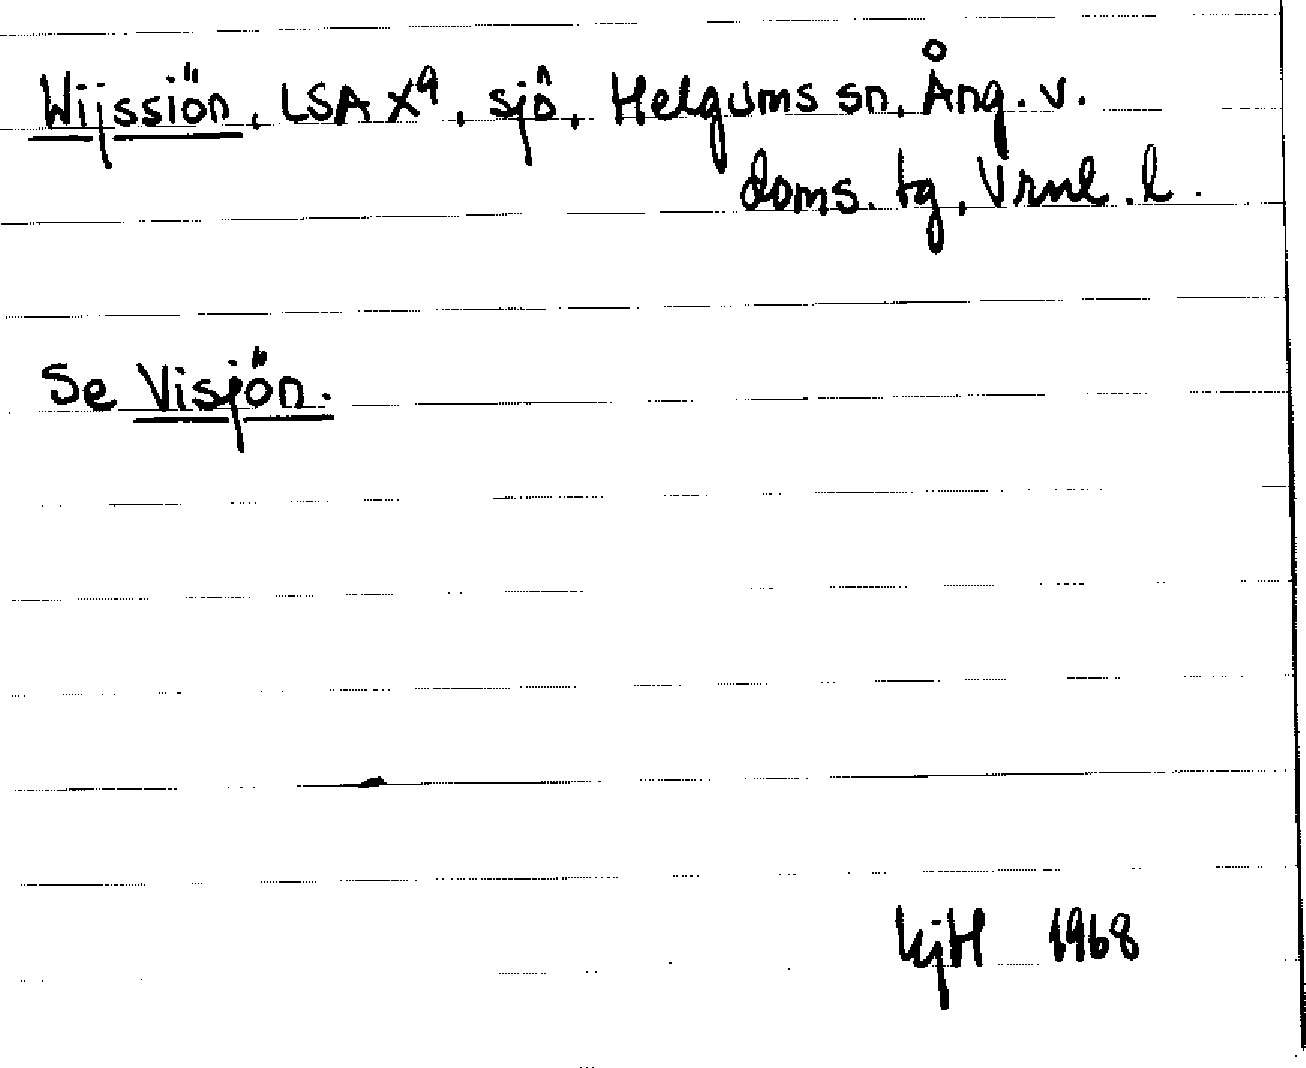 Wijssiön, LSA X⁹, sjö, Helgums sn, Ång. v.
doms. tg, Vrnl. l.
Se Visjön.
KjH 1968